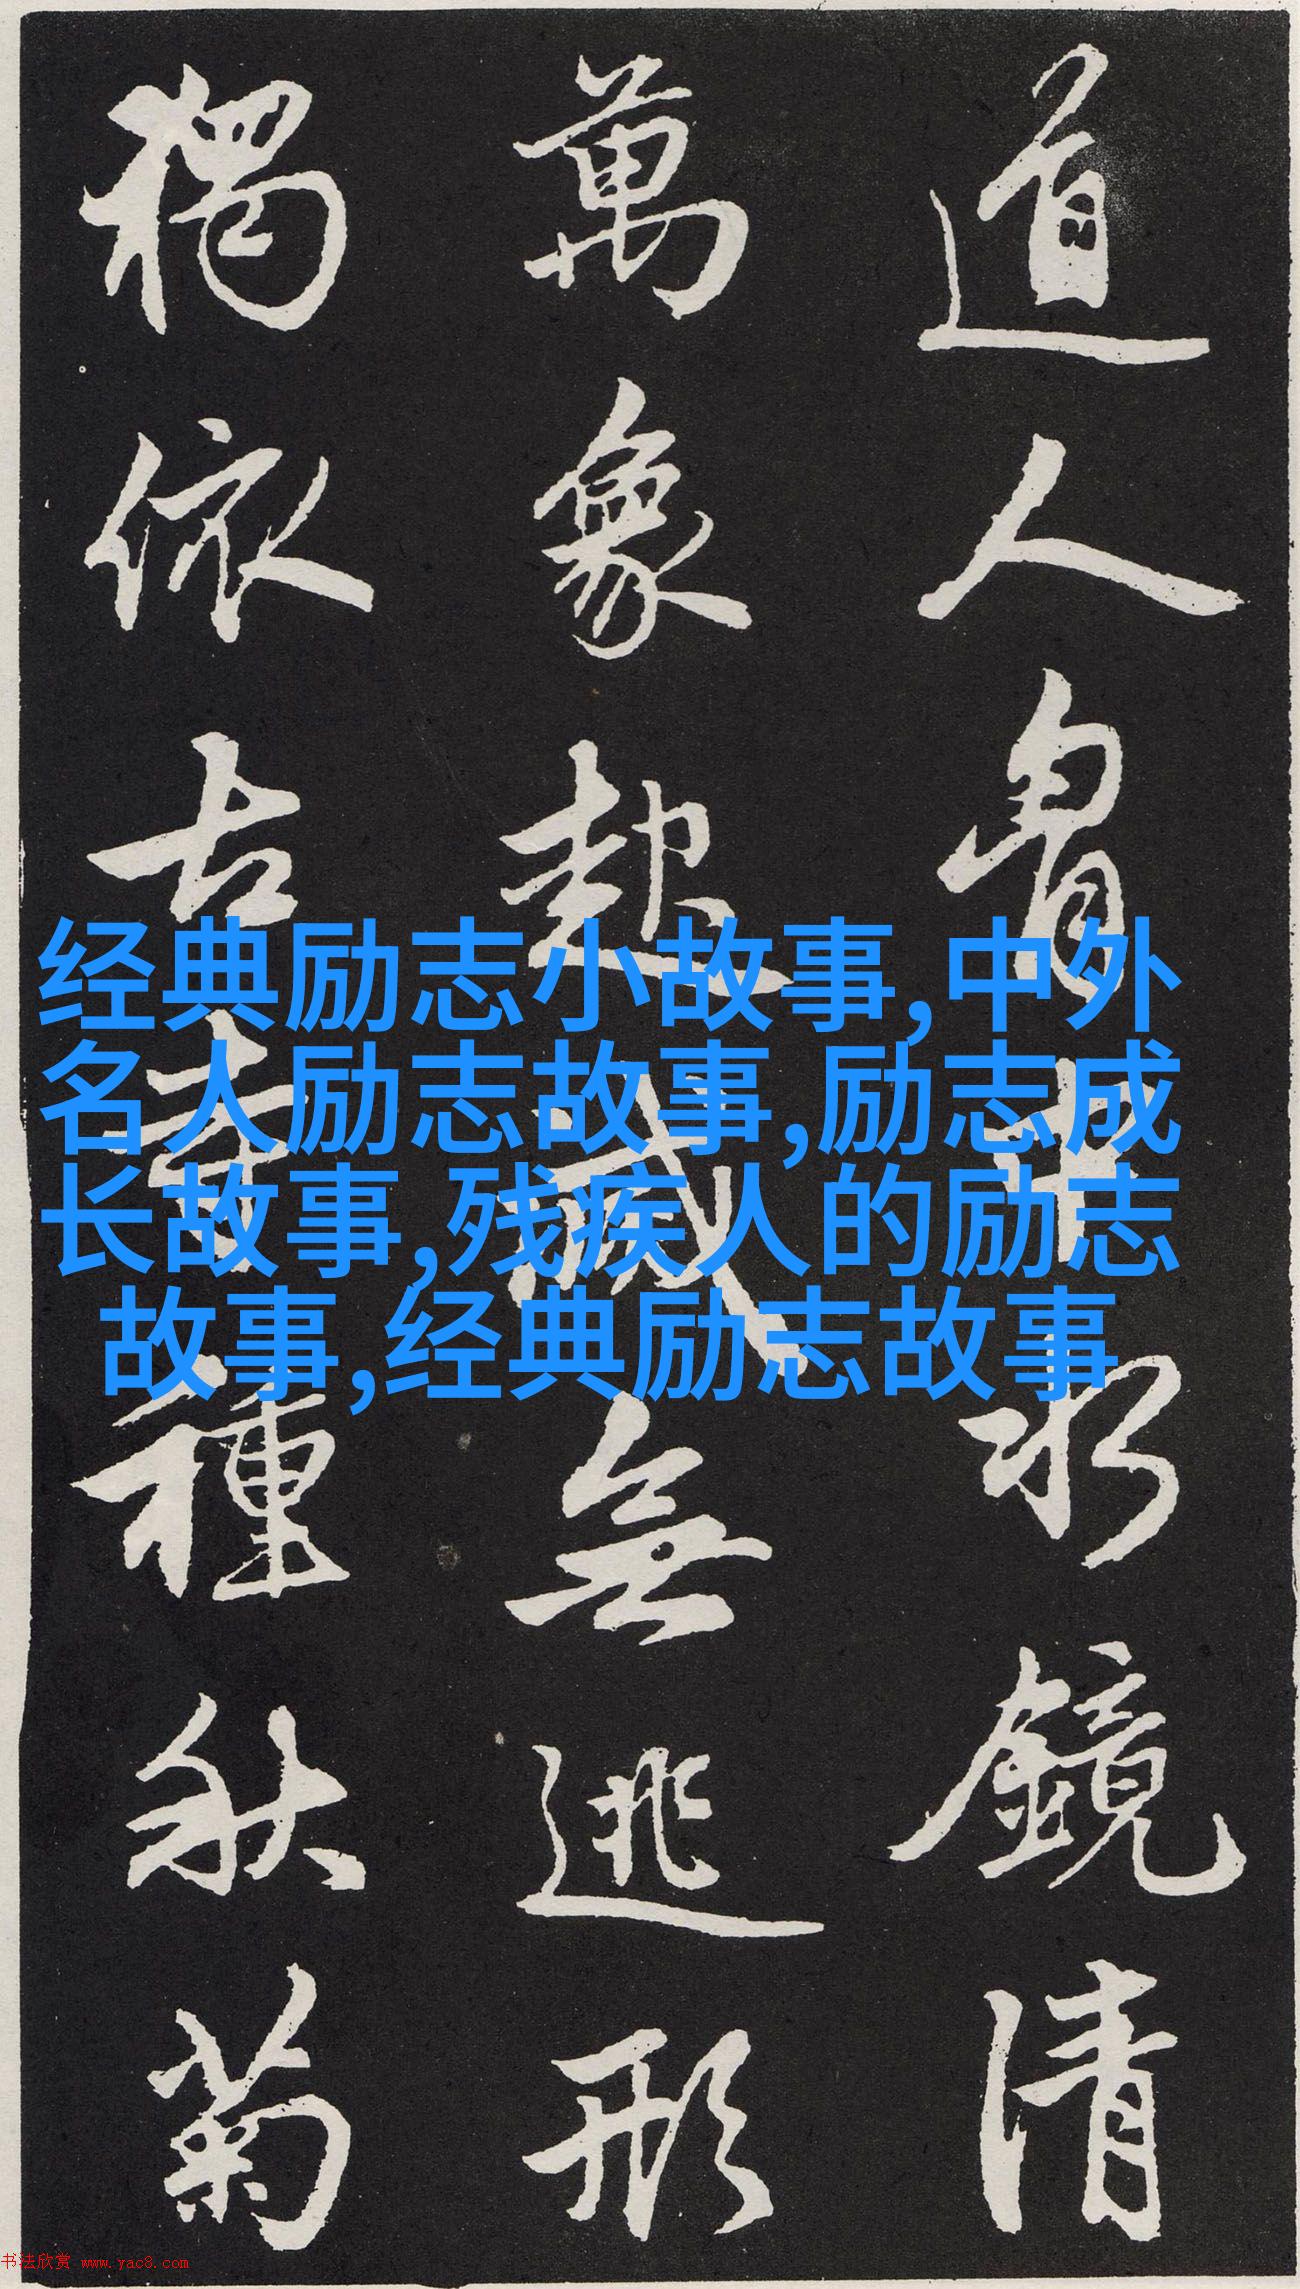 道人胷中水鏡清
萬象起滅無逃形
獨依古寺種秋菊
经典励志小故事,中外
名人励志故事,励志成
长故事,残疾人的励志
故事,经典励志故事
书法欣赏 www.yac8.com